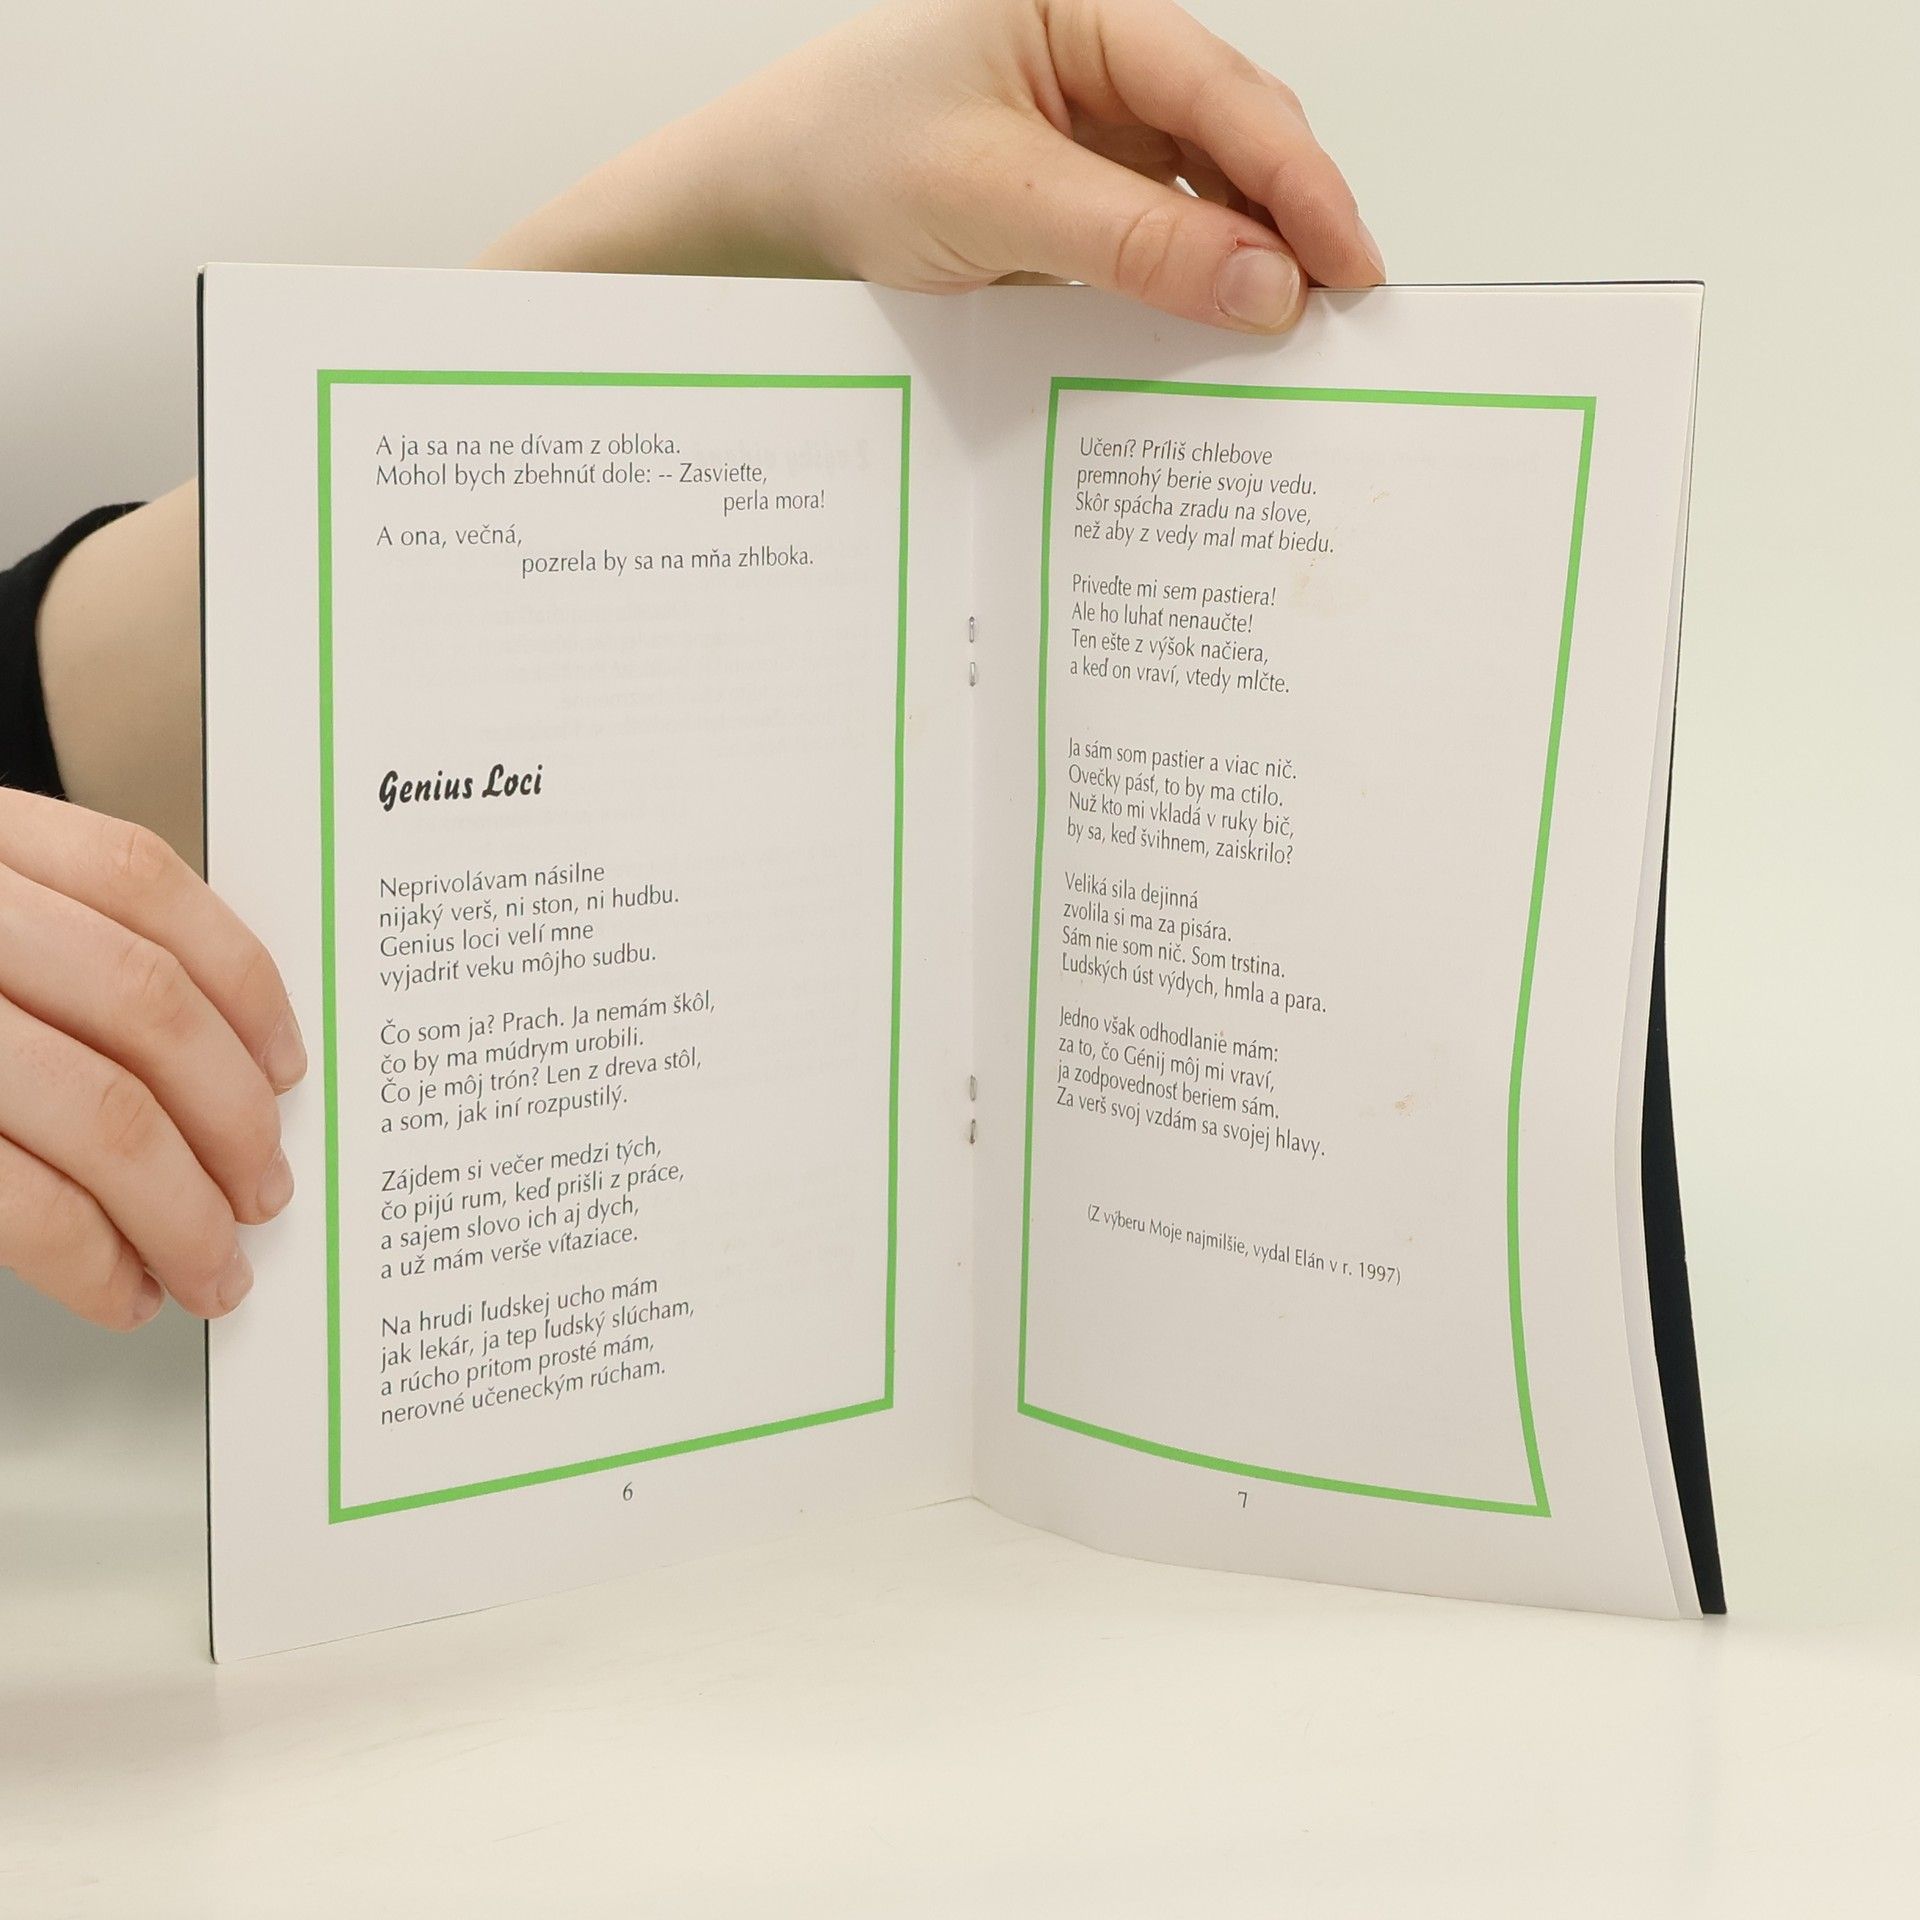 A ja sa na ne dívam z obloka.
Mohol bych zbehnúť dole: -- Zasvieťte,
perla mora!
A ona, večná,
pozrela by sa na mňa zhlboka.
Genius Loci
Neprivolávam násilne
nijaký verš, ni ston, ni hudbu.
Genius loci velí mne
vyjadriť veku môjho sudbu.
Čo som ja? Prach. Ja nemám škôl,
čo by ma múdrym urobili.
Čo je môj trón? Len z dreva stôl,
a som, jak iní rozpustilý.
Zájdem si večer medzi tých,
čo pijú rum, keď prišli z práce,
a sajem slovo ich aj dych,
a už mám verše víťaziace.
Na hrudi ľudskej ucho mám
jak lekár, ja tep ľudský slúcham,
a rúcho pritom prosté mám,
nerovné učeneckým rúcham.
6
Učení? Príliš chlebove
premnohý berie svoju vedu.
Skôr spácha zradu na slove,
než aby z vedy mal mať biedu.
Priveďte mi sem pastiera!
Ale ho luhať nenaučte!
Ten ešte z výšok načiera,
a keď on vraví, vtedy mlčte.
Ja sám som pastier a viac nič.
Ovečky pásť, to by ma ctilo.
Nuž kto mi vkladá v ruky bič,
by sa, keď švihnem, zaiskrilo?
Veliká sila dejinná
zvolila si ma za pisára.
Sám nie som nič. Som trstina.
Ľudských úst výdych, hmla a para.
Jedno však odhodlanie mám:
za to, čo Génij môj mi vraví,
ja zodpovednosť beriem sám.
Za verš svoj vzdám sa svojej hlavy.
(Z výberu Moje najmilšie, vydal Elán v r. 1997)
7